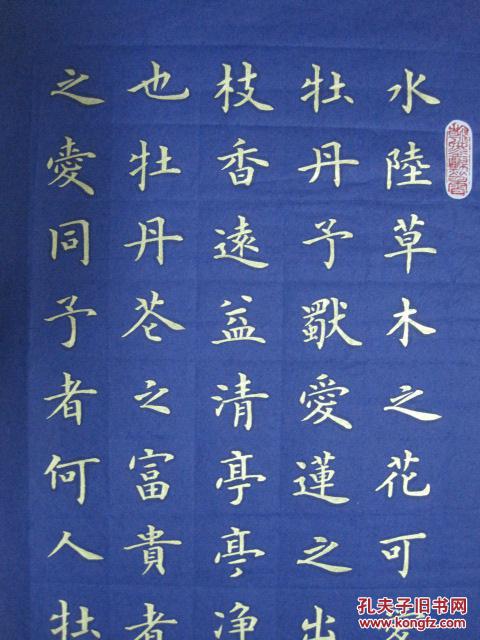 水陸草木之花可
牡丹予獨愛蓮之出
枝香遠益清亭亭净
也牡丹芲之富貴者
之愛同予者何人牡
孔夫子旧书网
www.kongfz.com